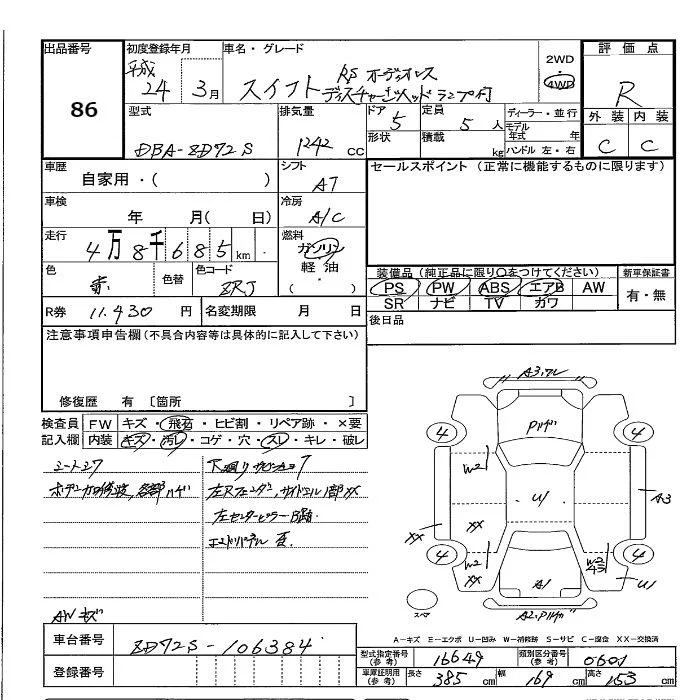 出品番号
86
初度登録年月
平成
24 3月
車名・グレード
スイフト RS オーディオレス
ディスチャージヘッドランプ付
2WD
4WD
評価点
R
外装 内装
C C
型式
DBA-ZD72S
排気量
1242 cc
ドア 5
形状
定員 5 人
積載 kg
ディーラー・並行
モデル年式 年
ハンドル 左・右
車歴
自家用・( )
シフト
AT
セールスポイント (正常に機能するものに限ります)
車検
年 月( 日)
冷房
A/C
走行
4万8千685km
燃料
ガソリン
軽油
( ・ )
色
赤
色替
色コード
ZRJ
装備品(純正品に限り〇をつけてください)
PS PW ABS エアB AW
SR ナビ TV カワ
新車保証書
有・無
R券 11.430 円
名変期限 月 日
後日品
注意事項申告欄(不具合内容等は具体的に記入して下さい)
修復歴 有 〔箇所 〕
検査員 FW キズ・飛石・ヒビ割・リペア跡・×要
記入欄 内装 キズ・汚レ・コゲ・穴・スレ・キレ・破レ
左センターピラー
エンドパネル
AWキズ
A3,ワレ
4 4
W2
U1
XX
A3
4 4
W2
XX
A1
U1
スペア
A-キズ E-エクボ U-凹み W-補修跡 S-サビ C-腐食 XX-交換済
車台番号
ZD72S-106384
登録番号
型式指定番号
(参考)
16649
類別区分番号
(参考)
0601
車庫証明用
(参考)
長さ 385 cm 幅 169 cm 高さ 153 cm